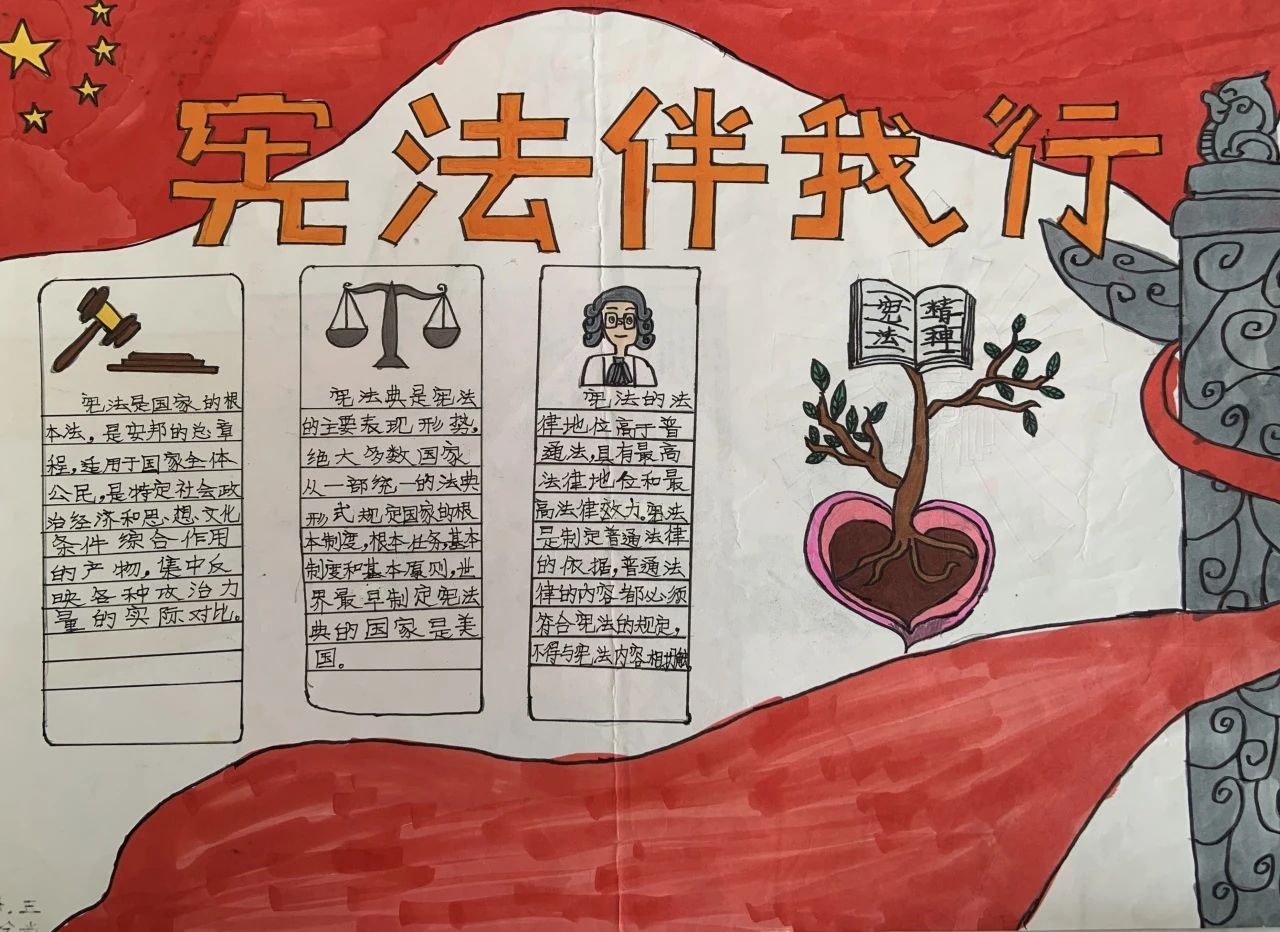 宪法伴我行
宪法是国家的根
本法，是安邦的总章
程，适用于国家全体
公民，是特定社会政
治经济和思想文化
条件综合作用
的产物，集中反
映各种政治力
量的实际对比。
宪法典是宪法
的主要表现形势，
绝大多数国家
从一部统一的法典
形式规定国家的根
本制度，根本任务，基本
制度和基本原则，世
界最早制定宪法
典的国家是美
国。
宪法的法
律地位高于普
通法，具有最高
法律地位和最
高法律效力。宪法
是制定普通法律
的依据，普通法
律的内容都必须
符合宪法的规定，
不得与宪法内容相抵触
宪法
精神